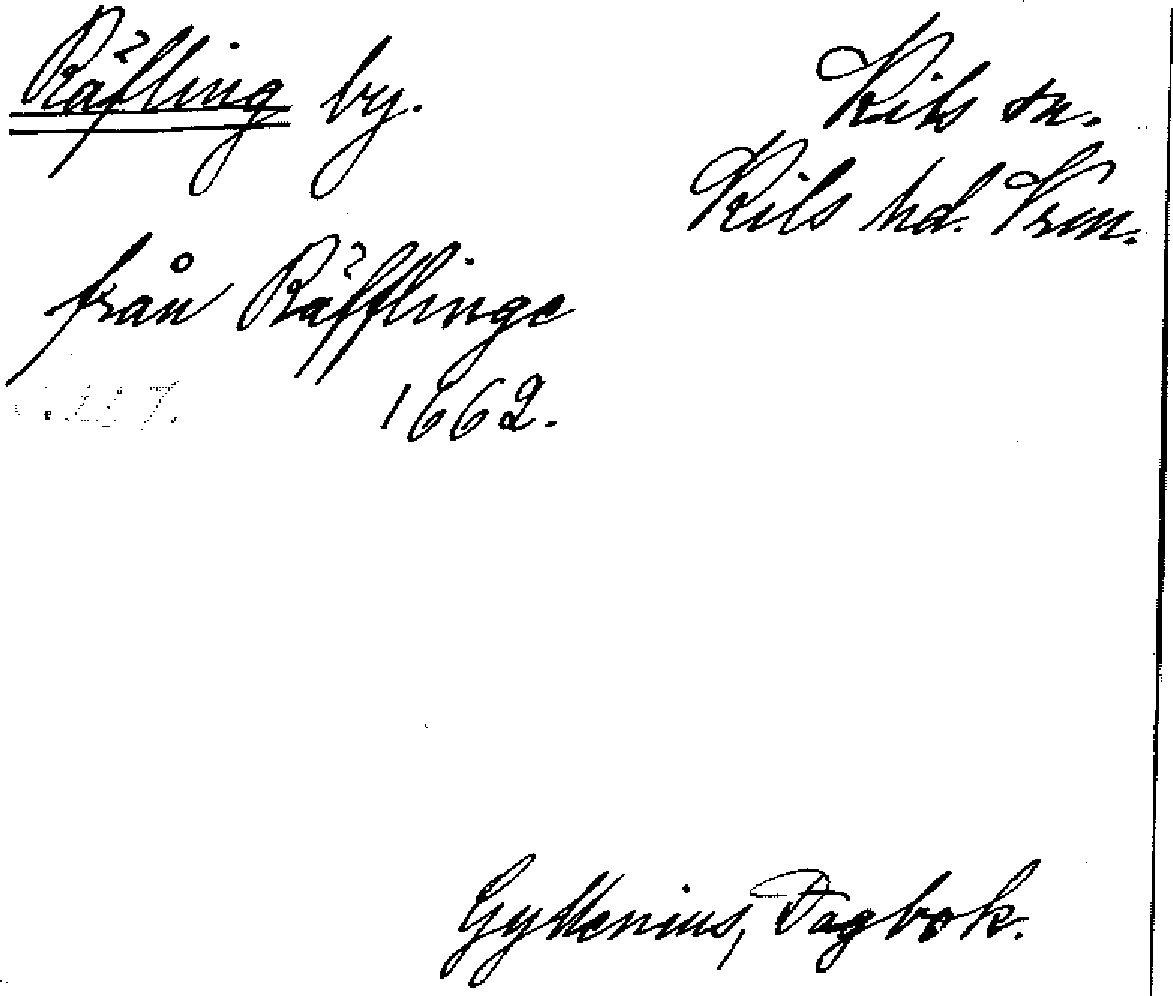 Räfling by.
Kils sn.
Kils hd. Vrm.
från Räfflinge
1662.
Gyllenius, Dagbok.